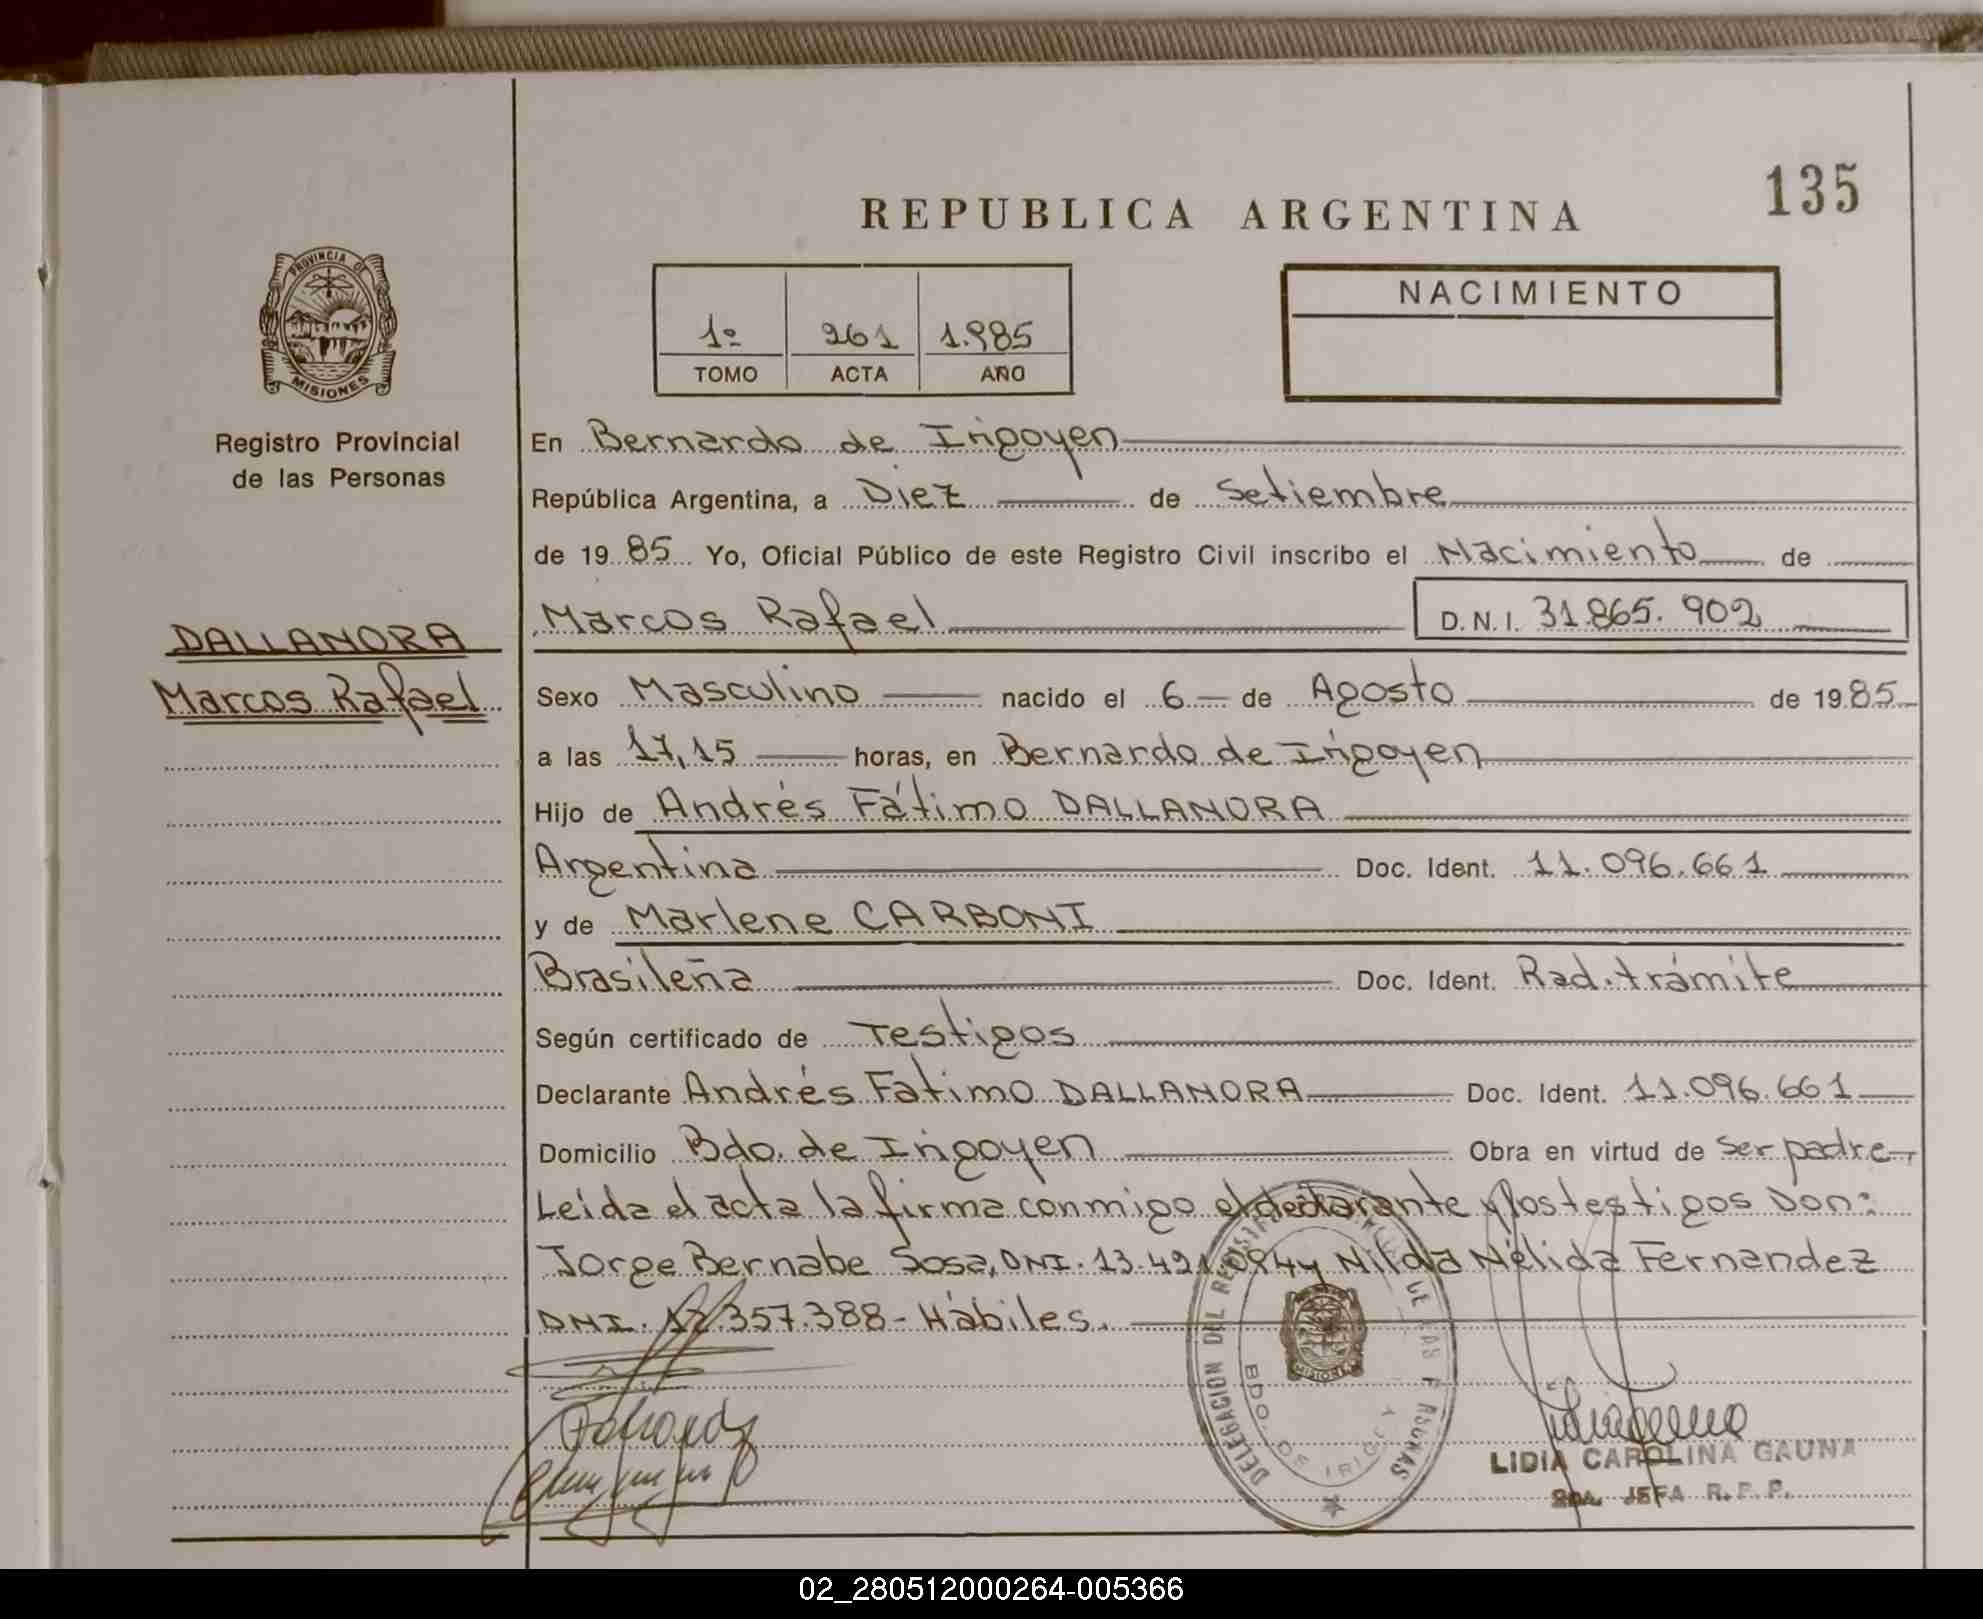 135
REPUBLICA ARGENTINA
PROVINCIA DE
MISIONES
Registro Provincial
de las Personas
1º 261 1.985
TOMO ACTA AÑO
NACIMIENTO
En Bernardo de Irigoyen
República Argentina, a Diez de Setiembre
de 19 85 Yo, Oficial Público de este Registro Civil inscribo el Nacimiento de
Marcos Rafael D.N.I. 31.865.902
DALLANORA
Marcos Rafael
Sexo Masculino nacido el 6 de Agosto de 1985
a las 17,15 horas, en Bernardo de Irigoyen
Hijo de Andrés Fátimo DALLANORA
Argentina Doc. Ident. 11.096.661
y de Marlene CARBONI
Brasileña Doc. Ident. Rad. trámite
Según certificado de Testigos
Declarante Andrés Fatimo DALLANORA Doc. Ident. 11.096.661
Domicilio Bdo. de Irigoyen Obra en virtud de ser padre
Leída el acta la firma conmigo el declarante y los testigos Don:
Jorge Bernabe Sosa, DNI. 13.491.094 y Nilda Nélida Fernandez
DNI. 12.357.388- Hábiles.
DELEGACION DEL REGISTRO DE LAS PERSONAS
BDO. DE IRIGOY
MISIONES
LIDIA CAROLINA GAUNA
2da. JEFA R.P.P.
02_280512000264-005366